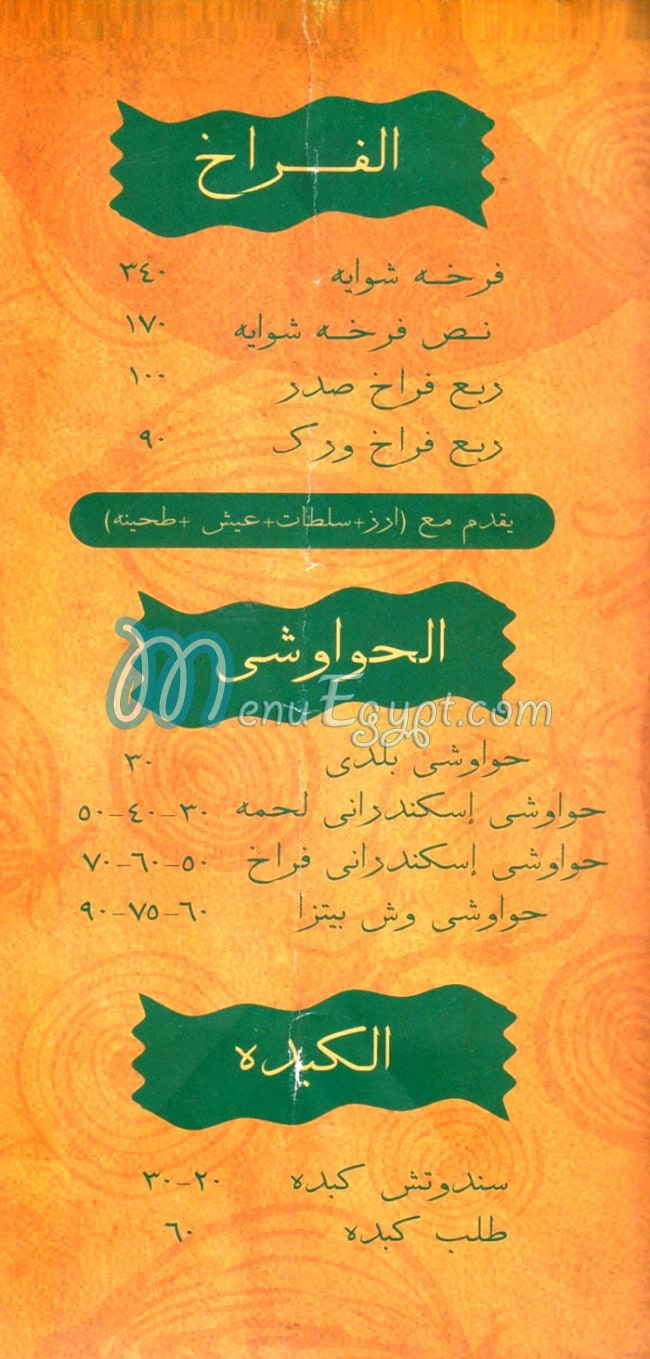 الفراخ
فرخه شوايه ٣٤٠
نص فرخه شوايه ١٧٠
ربع فراخ صدر ١٠٠
ربع فراخ ورك ٩٠
يقدم مع (ارز+سلطات+عيش +طحينه)
الحواوشى
MenuEgypt.com
حواوشى بلدى ٣٠
حواوشى إسكندرانى لحمه ٣٠-٤٠-٥٠
حواوشى إسكندرانى فراخ ٥٠-٦٠-٧٠
حواوشى وش بيتزا ٦٠-٧٥-٩٠
الكبده
سندوتش كبده ٢٠-٣٠
طلب كبده ٦٠